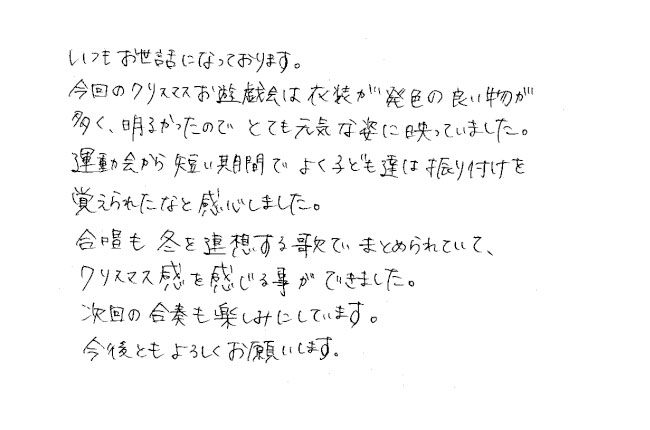 いつもお世話になっております。
今回のクリスマスお遊戯会は衣装が発色の良い物が
多く、明るかったのでとても元気な姿に映っていました。
運動会から短い期間でよく子ども達は振り付けを
覚えられたなと感心しました。
合唱も冬を連想する歌でまとめられていて、
クリスマス感を感じる事ができました。
次回の合奏も楽しみにしています。
今後ともよろしくお願いします。